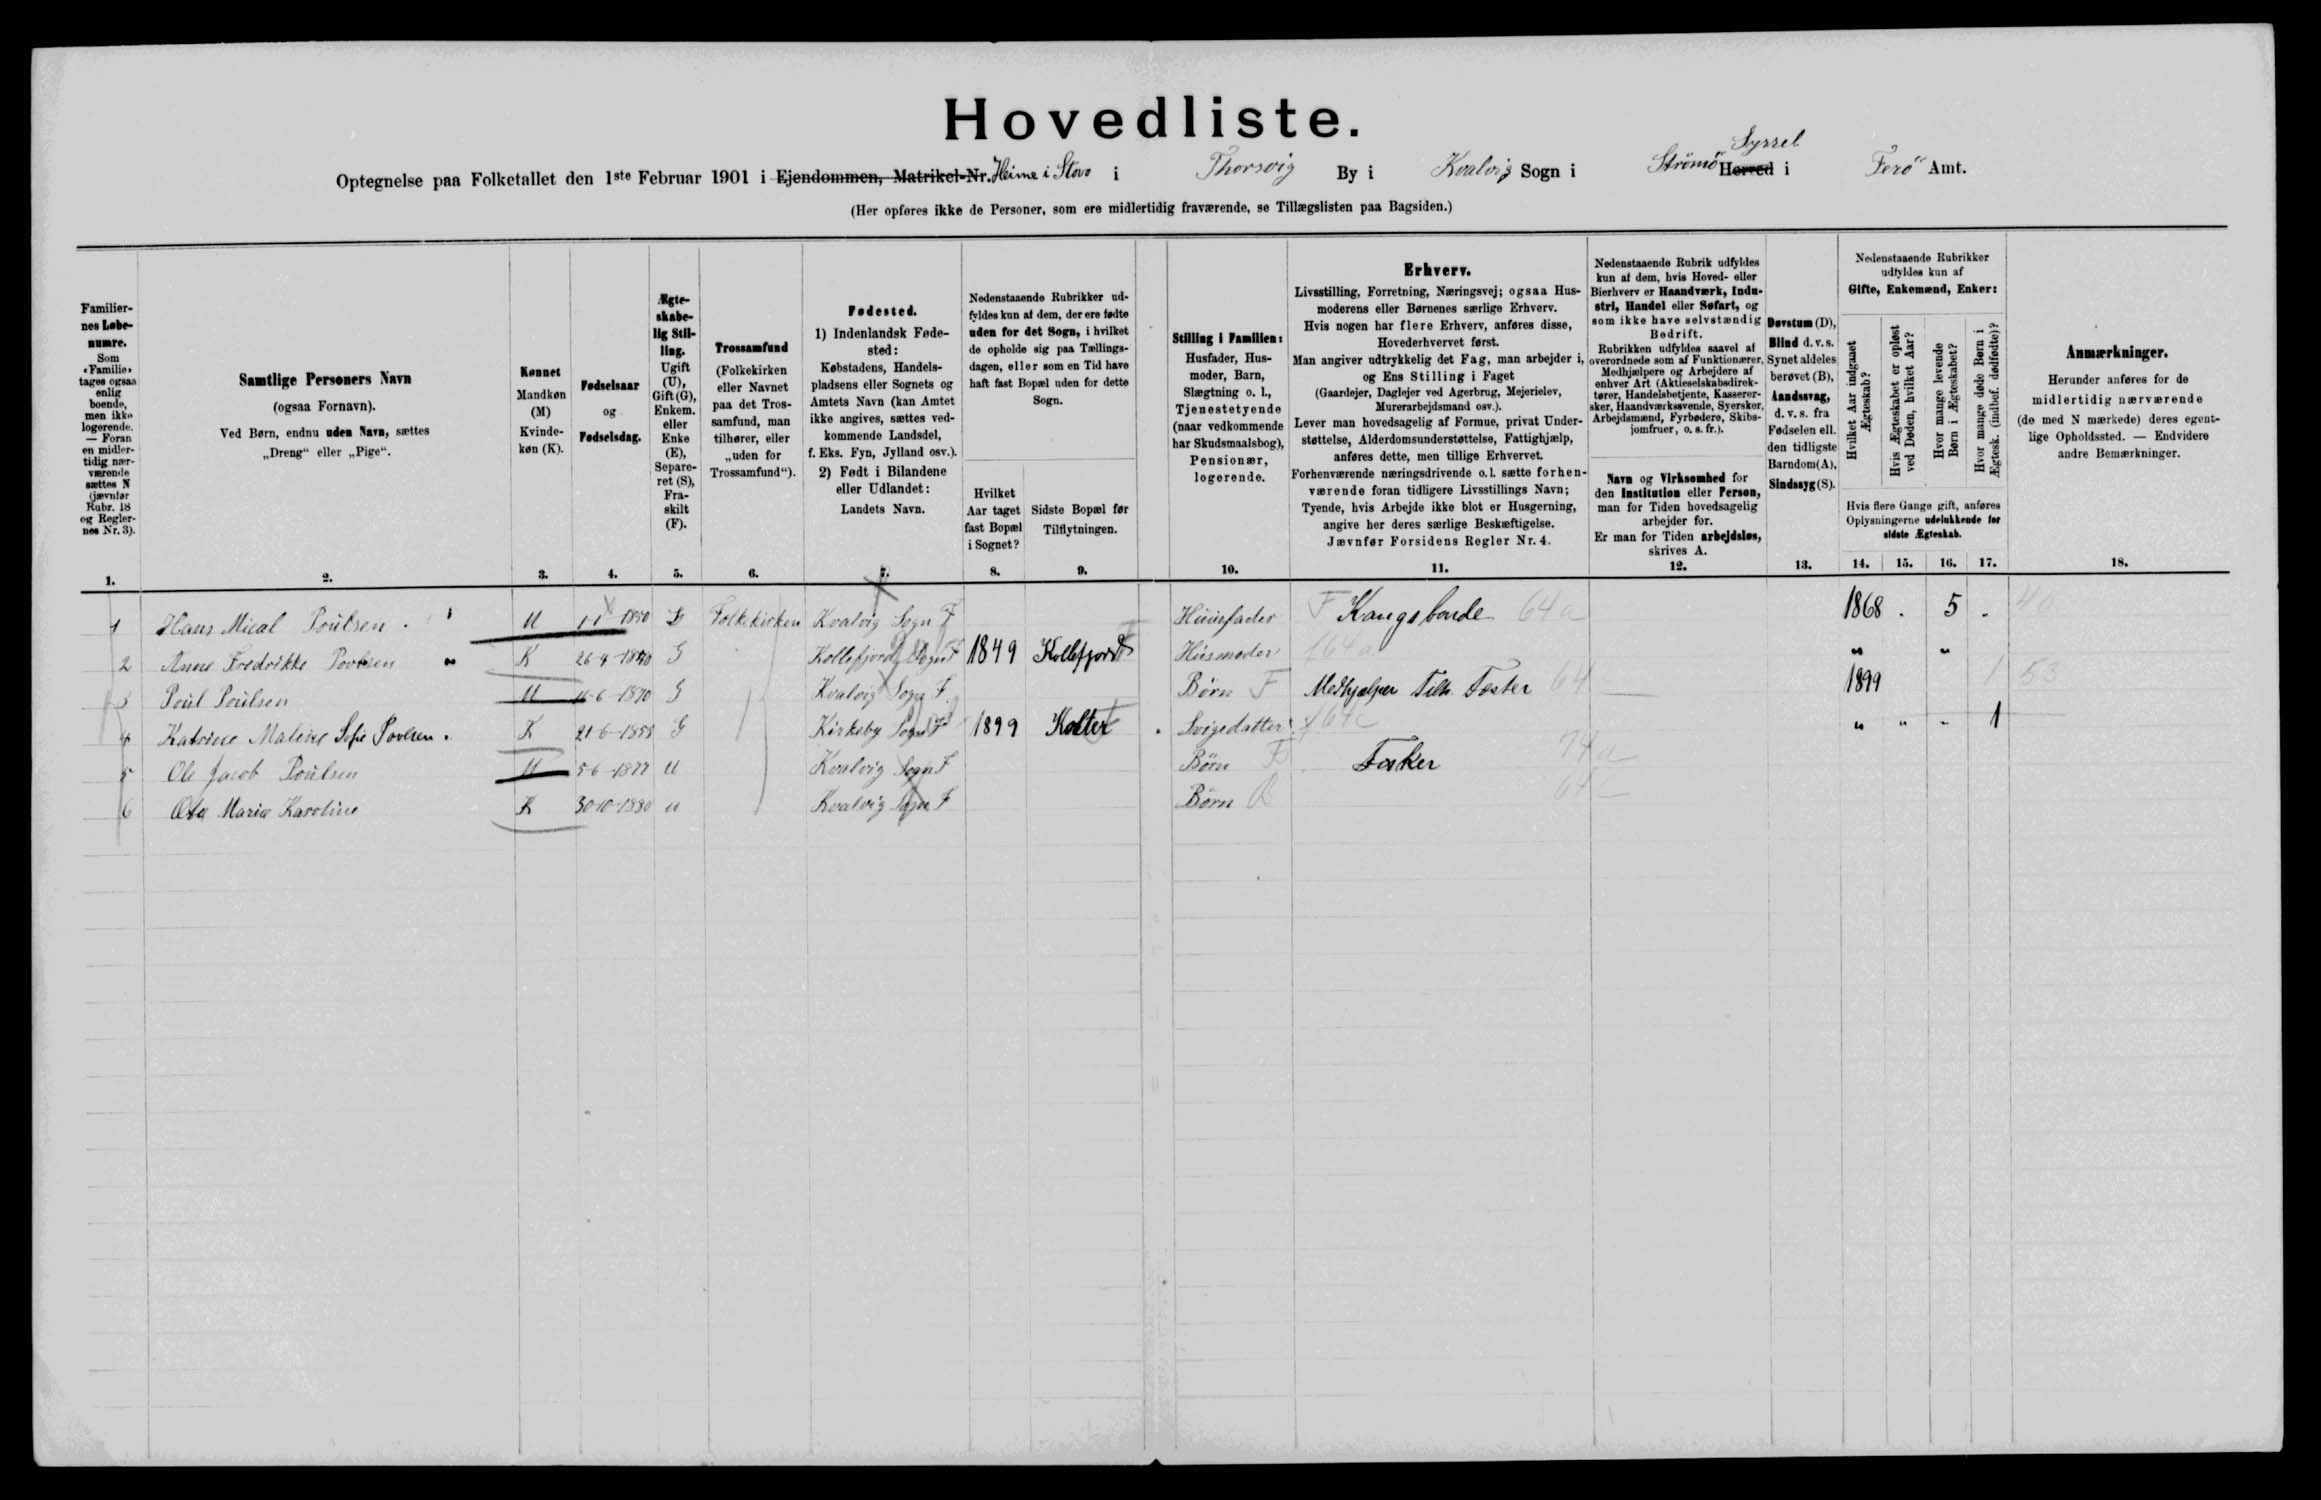 Hovedliste.
Optegnelse paa Folketallet den 1ste Februar 1901 i Ejendommen, Matrikel-Nr. Heime i Stovo i Thorsvig By i Kvalvig Sogn i Strömö Herred Syssel i Ferö Amt.
(Her opføres ikke de Personer, som ere midlertidig fraværende, se Tillægslisten paa Bagsiden.)
Familiernes Løbenumre.
Som «Familie» tages ogsaa enlig boende, men ikke logerende. — Foran en midlertidig nærværende sættes N (jævnfør Rubr. 18 og Reglernes Nr. 3).
Samtlige Personers Navn
(ogsaa Fornavn).
Ved Børn, endnu uden Navn, sættes
„Dreng“ eller „Pige“.
Kønnet
Mandkøn (M)
Kvindekøn (K).
Fødselsaar
og
Fødselsdag.
Ægteskabelig Stilling.
Ugift (U), Gift (G), Enkem. eller Enke (E), Separeret (S), Fraskilt (F).
Trossamfund
(Folkekirken eller Navnet paa det Trossamfund, man tilhører, eller „uden for Trossamfund“).
Fødested.
1) Indenlandsk Fødested:
Købstadens, Handelspladsens eller Sognets og Amtets Navn (kan Amtet ikke angives, sættes vedkommende Landsdel, f. Eks. Fyn, Jylland osv.).
2) Født i Bilandene eller Udlandet:
Landets Navn.
Nedenstaaende Rubrikker udfyldes kun af dem, der ere fødte uden for det Sogn, i hvilket de opholde sig paa Tællingsdagen, eller som en Tid have haft fast Bopæl uden for dette Sogn.
Hvilket Aar taget fast Bopæl i Sognet?
Sidste Bopæl før Tilflytningen.
Stilling i Familien:
Husfader, Husmoder, Barn, Slægtning o. l., Tjenestetyende (naar vedkommende har Skudsmaalsbog), Pensionær, logerende.
Erhverv.
Livsstilling, Forretning, Næringsvej; ogsaa Husmoderens eller Børnenes særlige Erhverv.
Hvis nogen har flere Erhverv, anføres disse, Hovederhvervet først.
Man angiver udtrykkelig det Fag, man arbejder i, og Ens Stilling i Faget
(Gaardejer, Daglejer ved Agerbrug, Mejerielev, Murerarbejdsmand osv.).
Lever man hovedsagelig af Formue, privat Understøttelse, Alderdomsunderstøttelse, Fattighjælp, anføres dette, men tillige Erhvervet.
Forhenværende næringsdrivende o. l. sætte forhenværende foran tidligere Livsstillings Navn;
Tyende, hvis Arbejde ikke blot er Husgerning, angive her deres særlige Beskæftigelse.
Jævnfør Forsidens Regler Nr. 4.
Nedenstaaende Rubrik udfyldes kun af dem, hvis Hoved- eller Bierhverv er Haandværk, Industri, Handel eller Søfart, og som ikke have selvstændig Bedrift.
Rubrikken udfyldes saavel af overordnede som af Funktionærer, Medhjælpere og Arbejdere af enhver Art (Aktieselskabsdirektører, Handelsbetjente, Kasserersker, Haandværkssvende, Syersker, Arbejdsmænd, Fyrbødere, Skibsjomfruer, o. s. fr.).
Navn og Virksomhed for den Institution eller Person, man for Tiden hovedsagelig arbejder for.
Er man for Tiden arbejdsløs, skrives A.
Døvstum (D), Blind d. v. s. Synet aldeles berøvet (B), Aandssvag, d. v. s. fra Fødselen ell. den tidligste Barndom (A), Sindssyg (S).
Nedenstaaende Rubrikker udfyldes kun af
Gifte, Enkemænd, Enker:
Hvilket Aar indgaaet Ægteskab?
Hvis Ægteskabet er opløst ved Døden, hvilket Aar?
Hvor mange levende Børn i Ægteskabet?
Hvor mange døde Børn i Ægtesk. (indbef. dødfødte)?
Hvis flere Gange gift, anføres Oplysningerne udelukkende for sidste Ægteskab.
Anmærkninger.
Herunder anføres for de midlertidig nærværende (de med N mærkede) deres egentlige Opholdssted. — Endvidere andre Bemærkninger.
1. 2. 3. 4. 5. 6. 7. 8. 9. 10. 11. 12. 13. 14. 15. 16. 17. 18.
1 Hans Mical Poulsen M 1-1-1840 G Folkekirken Kvalvig Sogn F Huusfader F Kongsbonde 64a 1868 5
2 Anne Fredrikke Povlsen K 26-9-1840 G Kollefjord Sogn F 1849 Kollefjord Husmoder 64a " "
3 Poul Poulsen M 16-6-1870 G Kvalvig Sogn F Börn F Medhjælper Tilh. Fosker 64 1899 1 53
4 Katrine Maline Sofie Povlsen K 21-6-1858 G Kirkeby Sogn F 1899 Kolter Svigedatter 64c " " - 1
5 Ole Jacob Poulsen M 5-6-1877 U Kvalvig Sogn F Börn Fosker 74a
6 Maria Karoline K 30-10-1880 U Kvalvig Sogn F Börn 64c